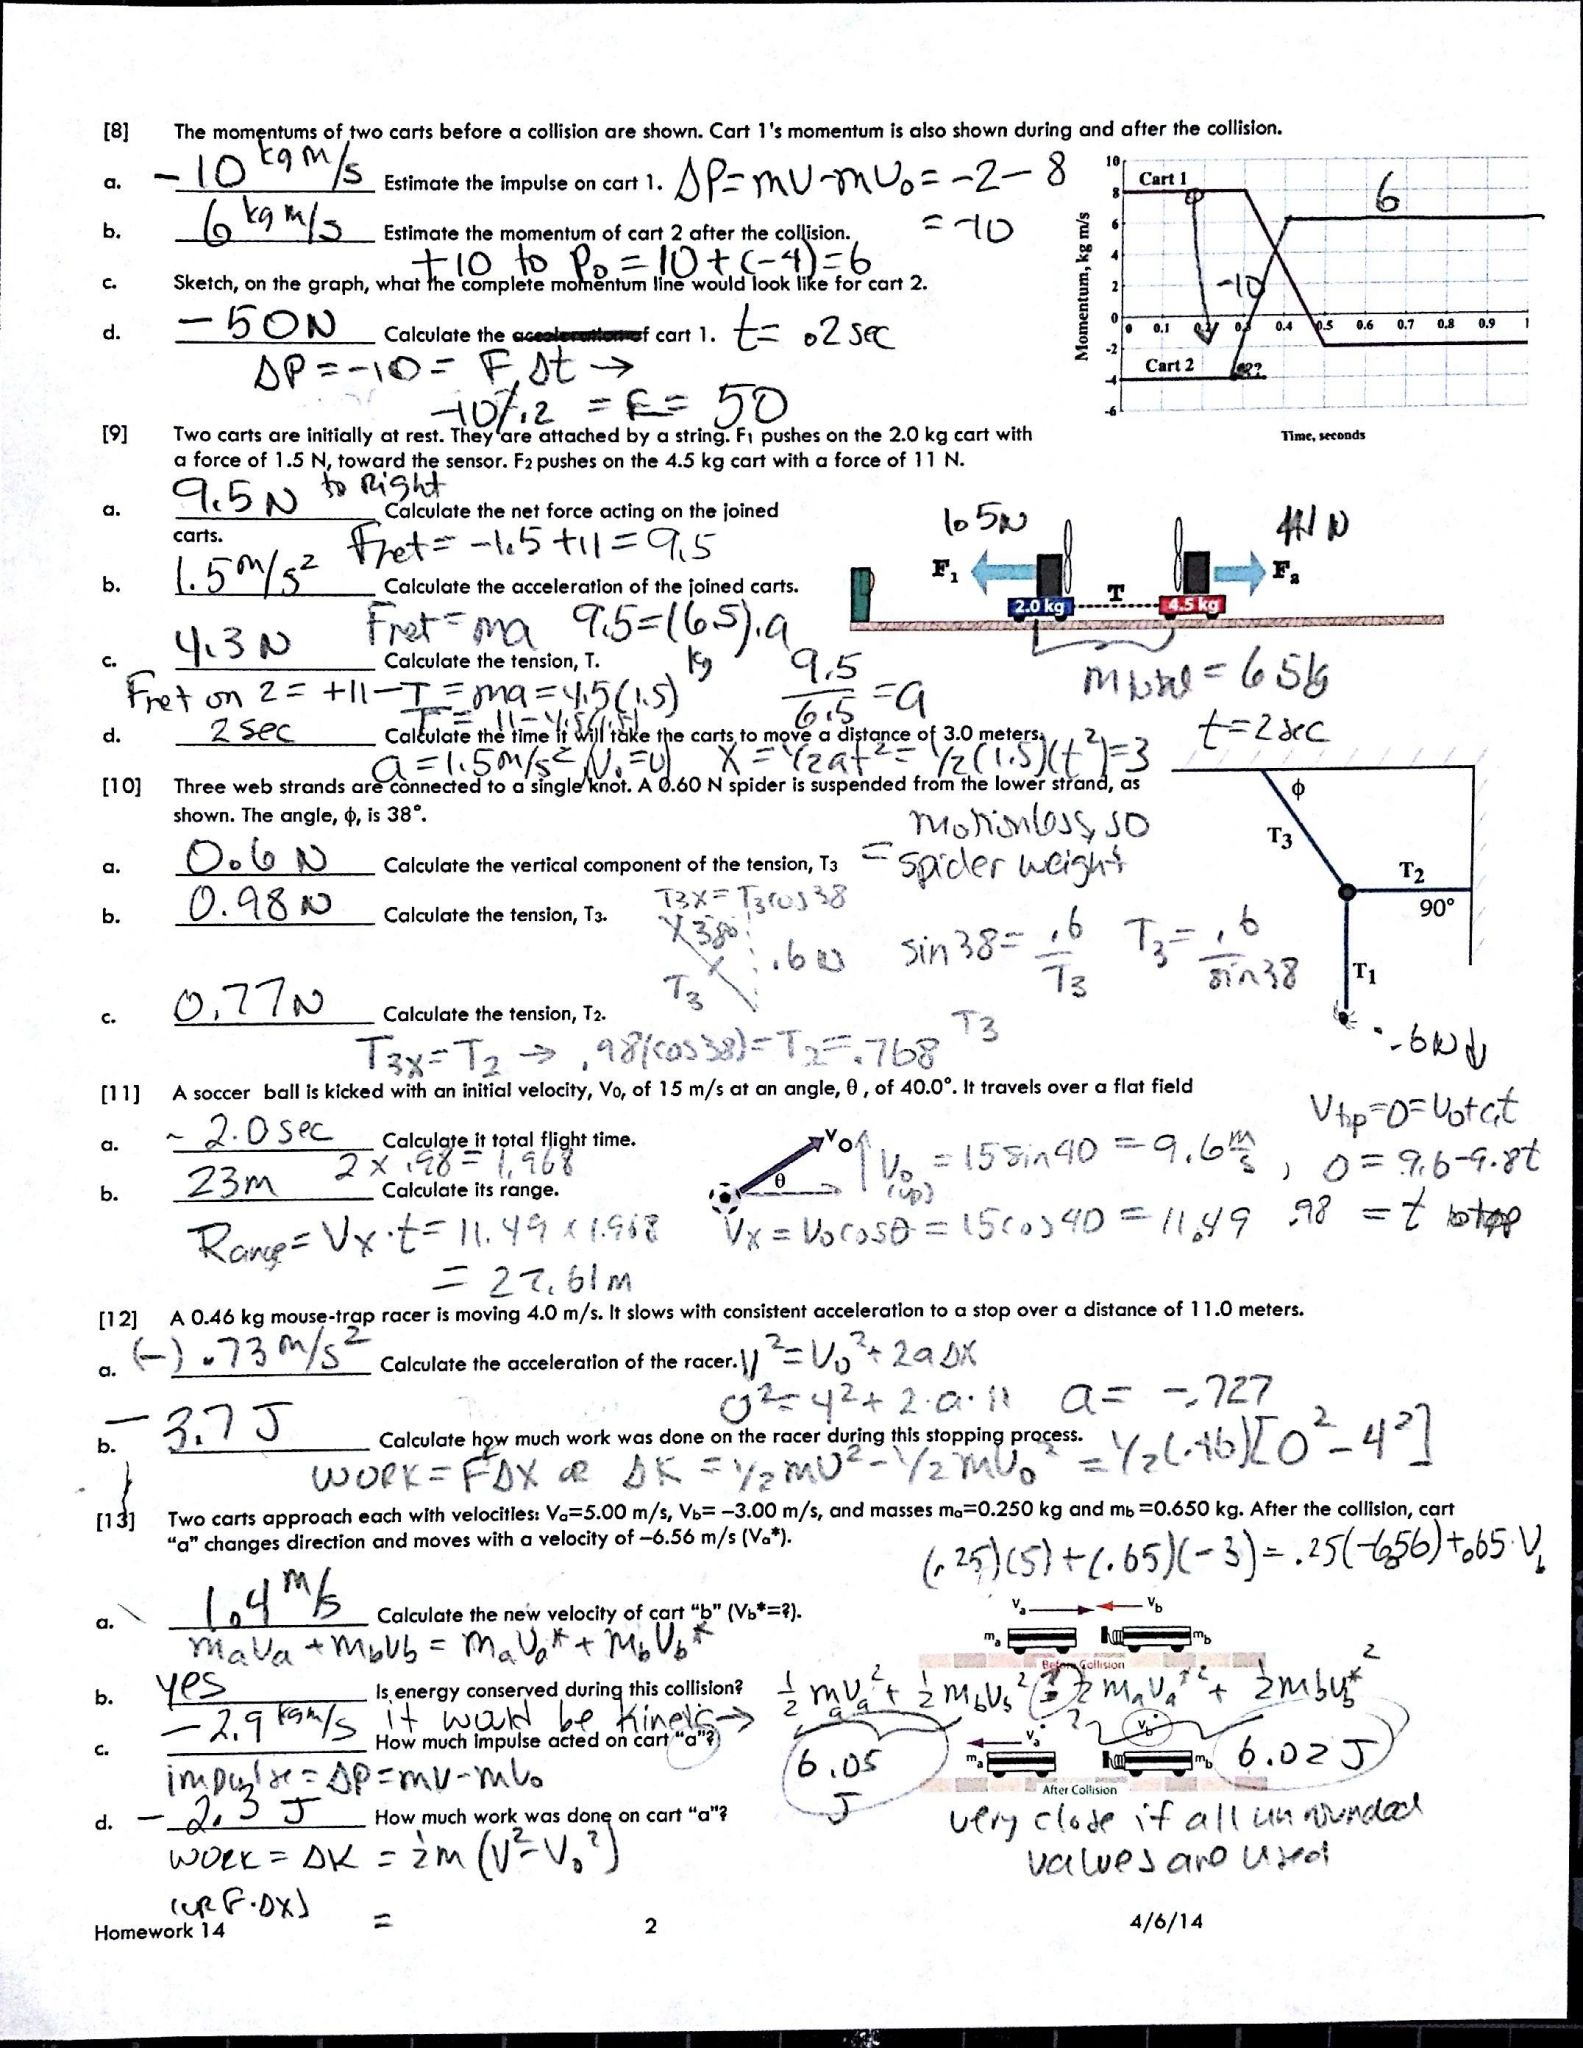 [8] The momentums of two carts before a collision are shown. Cart 1's momentum is also shown during and after the collision.
a. -10 kg m/s Estimate the impulse on cart 1. ΔP=mv-mv₀=-2-8
= -10
b. 6 kg m/s Estimate the momentum of cart 2 after the collision.
+10 to P₀ = 10+(-4)=6
c. Sketch, on the graph, what the complete momentum line would look like for cart 2.
d. -50N Calculate the of cart 1. t= .2 sec
ΔP = -10 = F Δt →
-10/.2 = F = 50
Momentum, kg m/s
10
8
6
4
2
0
-2
-4
-6
Cart 1
6
-10
0 0.1 0.2 0.3 0.4 0.5 0.6 0.7 0.8 0.9 1
Cart 2
??
Time, seconds
[9] Two carts are initially at rest. They are attached by a string. F₁ pushes on the 2.0 kg cart with
a force of 1.5 N, toward the sensor. F₂ pushes on the 4.5 kg cart with a force of 11 N.
a. 9.5 N to Right Calculate the net force acting on the joined
carts. Fnet = -1.5 +11 = 9.5
b. 1.5 m/s² Calculate the acceleration of the joined carts.
Fnet = ma 9.5=(6.5).a
kg
9.5/6.5 = a
c. 4.3 N Calculate the tension, T.
Fnet on 2 = +11-T = ma = 4.5(1.5)
T = 11-4.5(1.5)
d. 2 sec Calculate the time it will take the carts to move a distance of 3.0 meters.
a = 1.5 m/s² (V₀=0) X = ½at² = ½(1.5)(t²)=3
t=2 sec
1.5N
11 N
F₁
T
F₂
2.0 kg
4.5 kg
m total = 6.5 kg
[10] Three web strands are connected to a single knot. A 0.60 N spider is suspended from the lower strand, as
shown. The angle, ϕ, is 38°.
a. 0.6 N Calculate the vertical component of the tension, T₃ = motionless, so
spider weight
b. 0.98 N Calculate the tension, T₃.
T3x = T₃cos38
38°
.6 N
T₃
sin 38 = .6/T₃ T₃ = .6/sin38
c. 0.77 N Calculate the tension, T₂.
T3x = T₂ → .98(cos38) = T₂ = .768
T3
ϕ
T₃
T₂
90°
T₁
.6N ↓
[11] A soccer ball is kicked with an initial velocity, V₀, of 15 m/s at an angle, θ, of 40.0°. It travels over a flat field
a. ~ 2.0 sec Calculate it total flight time.
2 x .98 = 1.968
b. 23m Calculate its range.
Range = Vx·t = 11.49 x 1.968
= 22.61m
V₀
θ
V₀ (up) = 15 sin 40 = 9.6 m/s,
Vx = V₀cosθ = 15 cos 40 = 11.49
Vtop=0=V₀+at
0 = 9.6-9.8t
.98 = t to top
[12] A 0.46 kg mouse-trap racer is moving 4.0 m/s. It slows with consistent acceleration to a stop over a distance of 11.0 meters.
a. (-) .73 m/s² Calculate the acceleration of the racer. V²=V₀²+2aΔx
0²=4²+2·a·11 a = -.727
b. -3.7 J Calculate how much work was done on the racer during this stopping process.
WORK = FΔX or ΔK = ½mv²-½mv₀² = ½(.46)[0²-4²]
[13] Two carts approach each with velocities: Vₐ=5.00 m/s, Vb= −3.00 m/s, and masses mₐ=0.250 kg and mb =0.650 kg. After the collision, cart
"a" changes direction and moves with a velocity of −6.56 m/s (Vₐ*).
(.25)(5)+(.65)(-3)=.25(-6.56)+.65·Vb
a. 1.4 m/s Calculate the new velocity of cart "b" (Vb*=?).
mₐVₐ + mbVb = mₐVₐ* + mbVb*
b. yes Is energy conserved during this collision?
it would be Kinetic →
½mₐvₐ² + ½mbvb² = ½mₐvₐ*² + ½mbvb*²
?
6.05 J
6.02 J
very close if all unrounded
values are used
c. -2.9 kg m/s How much impulse acted on cart "a"?
impulse = ΔP = mv-mv₀
d. -2.3 J How much work was done on cart "a"?
WORK = ΔK = ½m(V²-V₀²)
(or F·ΔX) =
Vₐ
Vb
mₐ
mb
Before Collision
Vₐ*
Vb*
mₐ
mb
After Collision
Homework 14 2 4/6/14